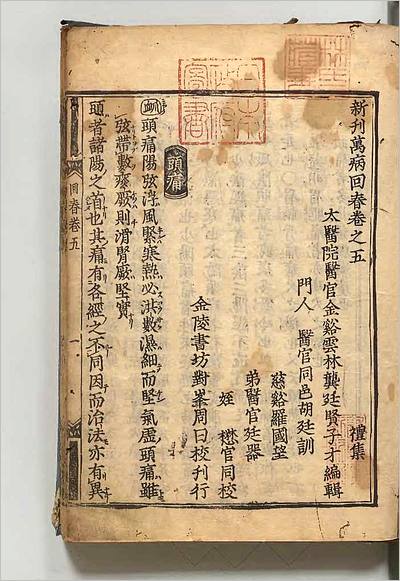 新刊萬病回春卷之五
禮集
太醫院醫官金谿雲林龔廷賢子才編輯
門人 醫官同邑胡廷訓
慈谿羅國望
弟醫官廷器
姪 懋官同校
金陵書坊對峯周曰校刊行
頭痛
頭痛陽弦浮風緊寒熱必洪數濕細而堅氣虛頭痛雖
弦帶數痰厥則滑腎厥堅實
頭者諸陽之首也其痛有各經之不同因而治法亦有異
回春卷五
一